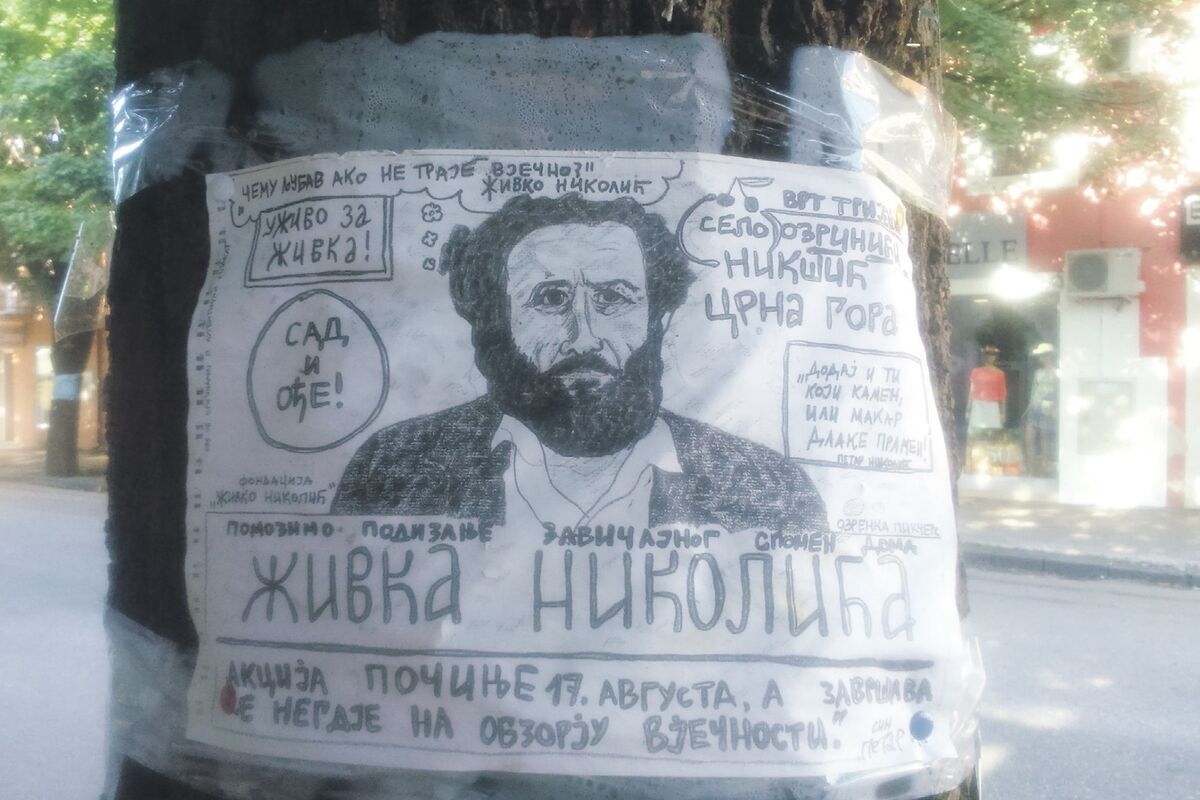 ЧЕМУ ЉУБАВ АКО НЕ ТРАЈЕ ВЈЕЧНО?"
ЖИВКО НИКОЛИЋ
УЖИВО ЗА
ЖИВКА!
САД
И
ОЂЕ!
ВРТ
СЕЛО ОЗРИНИЋИ
НИКШИЋ
ЦРНА ГОРА
„ДОДАЈ И ТИ
КОЈИ КАМЕН,
ИЛИ МАКАР
ДЛАКЕ ПРАМЕН!
ПЕТАР НИКОЛИЋ
ФОНДАЦИЈА
„ЖИВКО НИКОЛИЋ"
ОЗРЕНКА ПИКЧЕРС
ПОМОЗИМО ПОДИЗАЊЕ ЗАВИЧАЈНОГ СПОМЕН ДОМА
ЖИВКА НИКОЛИЋА
АКЦИЈА ПОЧИЊЕ 17. АВГУСТА, А ЗАВРШАВА
СЕ НЕГДЈЕ НА ОБЗОРЈУ ВЈЕЧНОСТИ."
СИН
ПЕТАР
ELLE